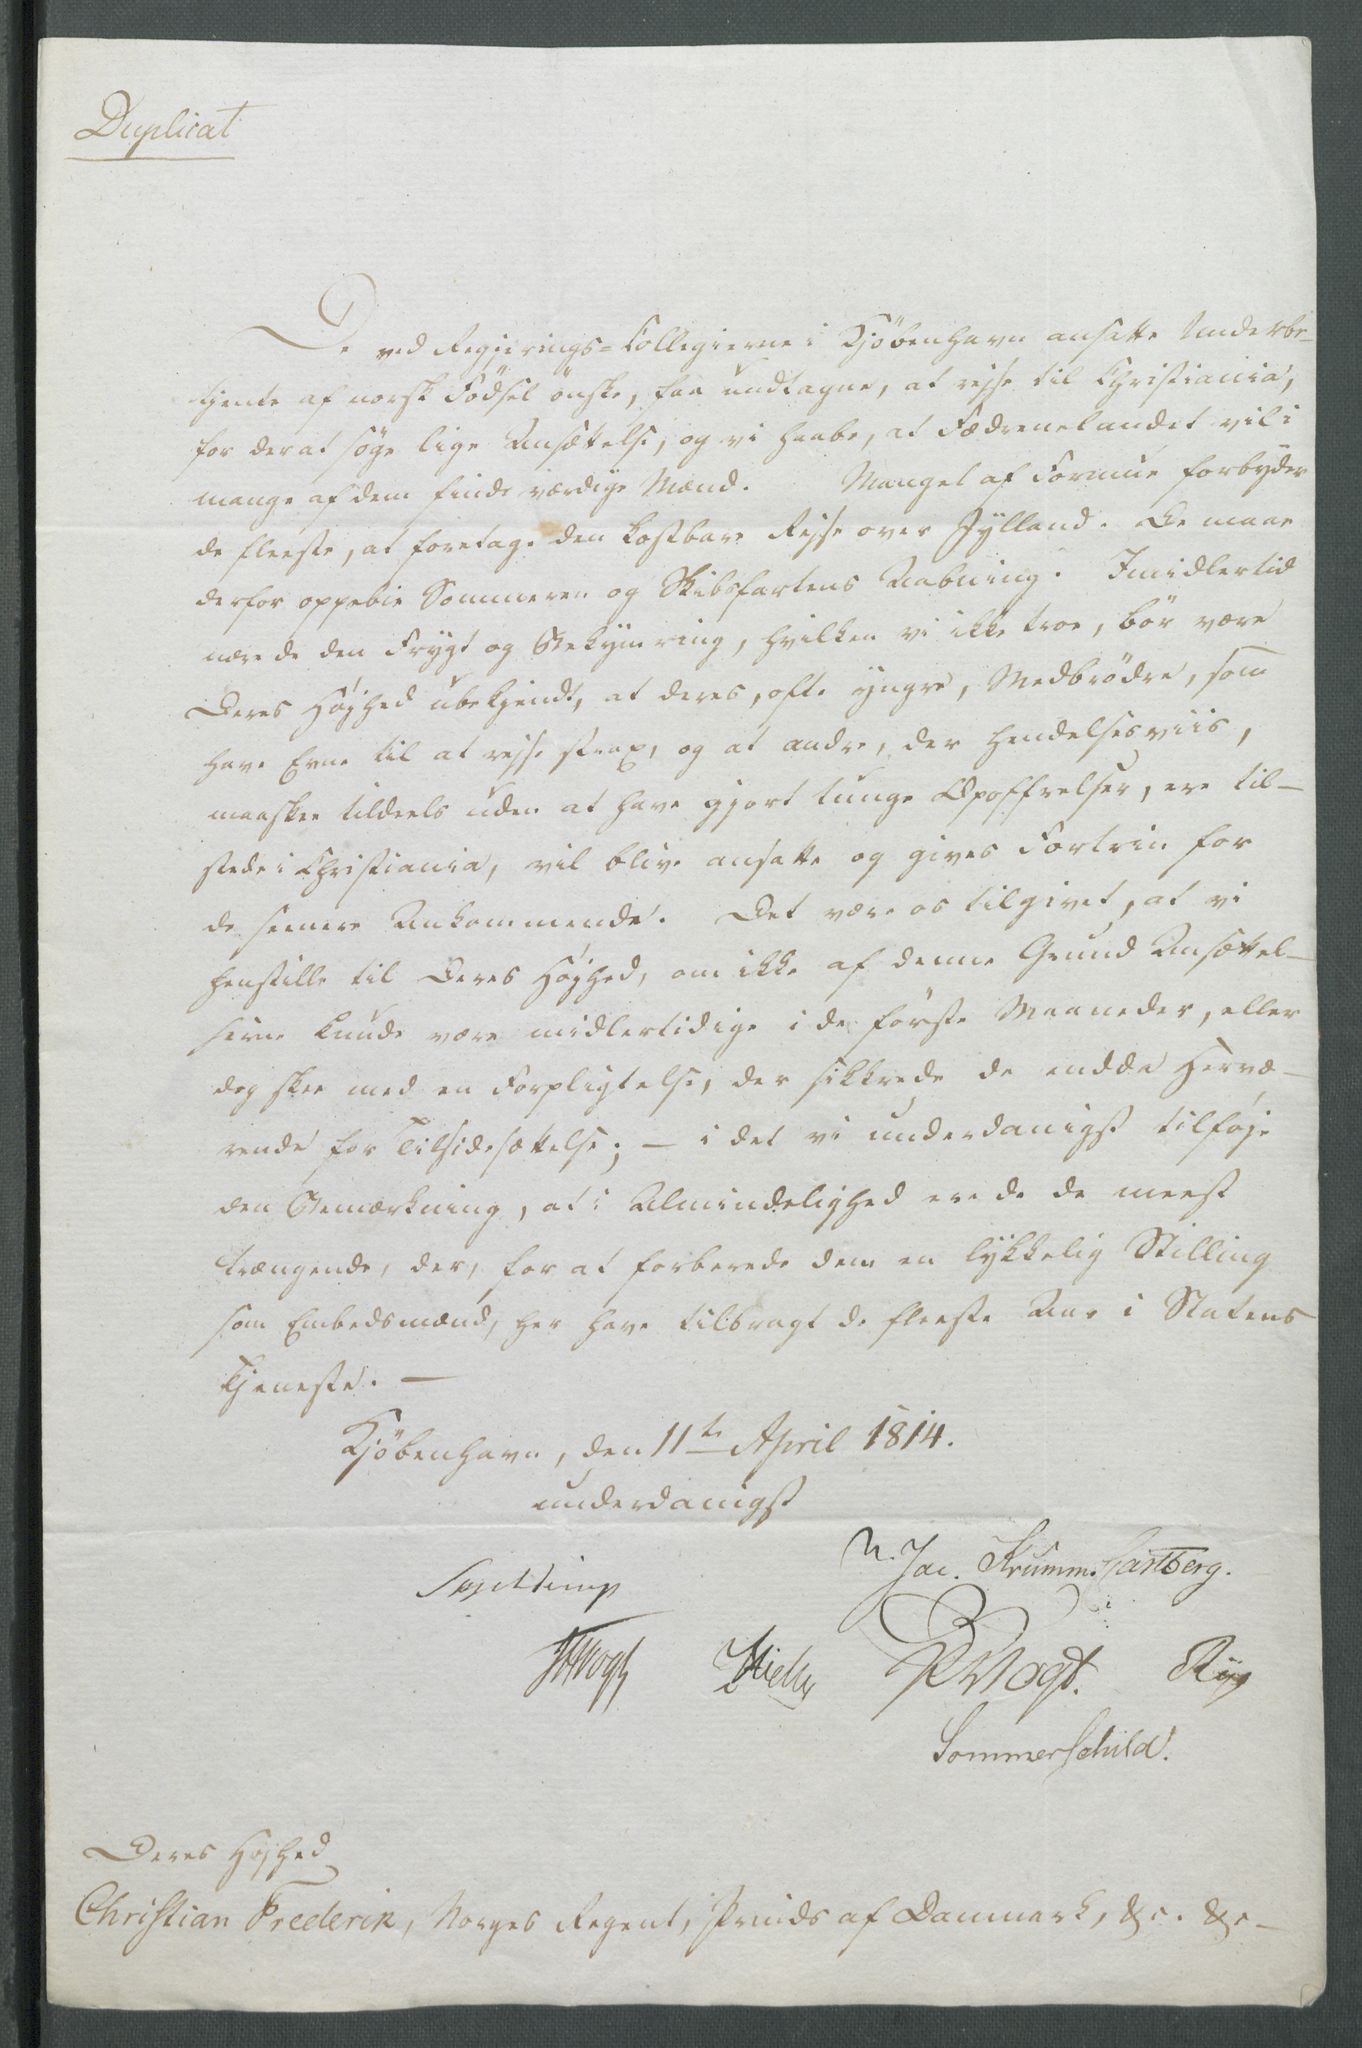 Duplicat
De ved Regjerings=Collegierne i Kjöbenhavn ansatte Underbe-
tjente af norsk Födsel önske, faa undtagne, at rejse til Christiania,
for der at söge lige Ansættelse, og vi haabe, at Fædrenelandet vil i
mange af dem finde værdige Mænd. Mangel af Formue forbyder
de fleeste, at foretage den kostbare Rejse over Jylland. De maae
derfor oppebie Sommeren og Skibsfartens Aabning. Imidlertid
nære de den Frygt og Bekymring, hvilken vi ikke troe, bör være
Deres Höjhed ubekjendt, at deres, ofte yngre, Medbrödre, som
have Evne til at rejse strax, og at andre, der hendelsesviis,
maaskee tildeels uden at have gjort tunge Opoffrelser, ere til-
stede i Christiania, vil blive ansatte og gives Fortrin for
de seenere Ankommende. Det være os tilgivet, at vi
henstille til Deres Höjhed, om ikke af denne Grund Ansættel-
serne kunde være midlertidige i de förste Maaneder, eller
dog skee med en Forpligtelse, der sikkrede de endda Hervæ-
rende for Tilsidesættelse; - i det vi underdanigst tilföje
den Bemærkning, at i Almindelighed ere de de meest
trængende, der, for at forberede dem en lykkelig Stilling
som Embedsmænd, her have tilbragt de fleeste Aar i Statens
Tjeneste. -
Kjöbenhavn, den 11te April 1814.
underdanigst
N. Jac. Krumm. Carlberg.
Vogt P Vogt. Rye
Sommerschild.
Deres Höjhed
Christian Frederik, Norges Regent, Prinds af Danmark, &c. &c-